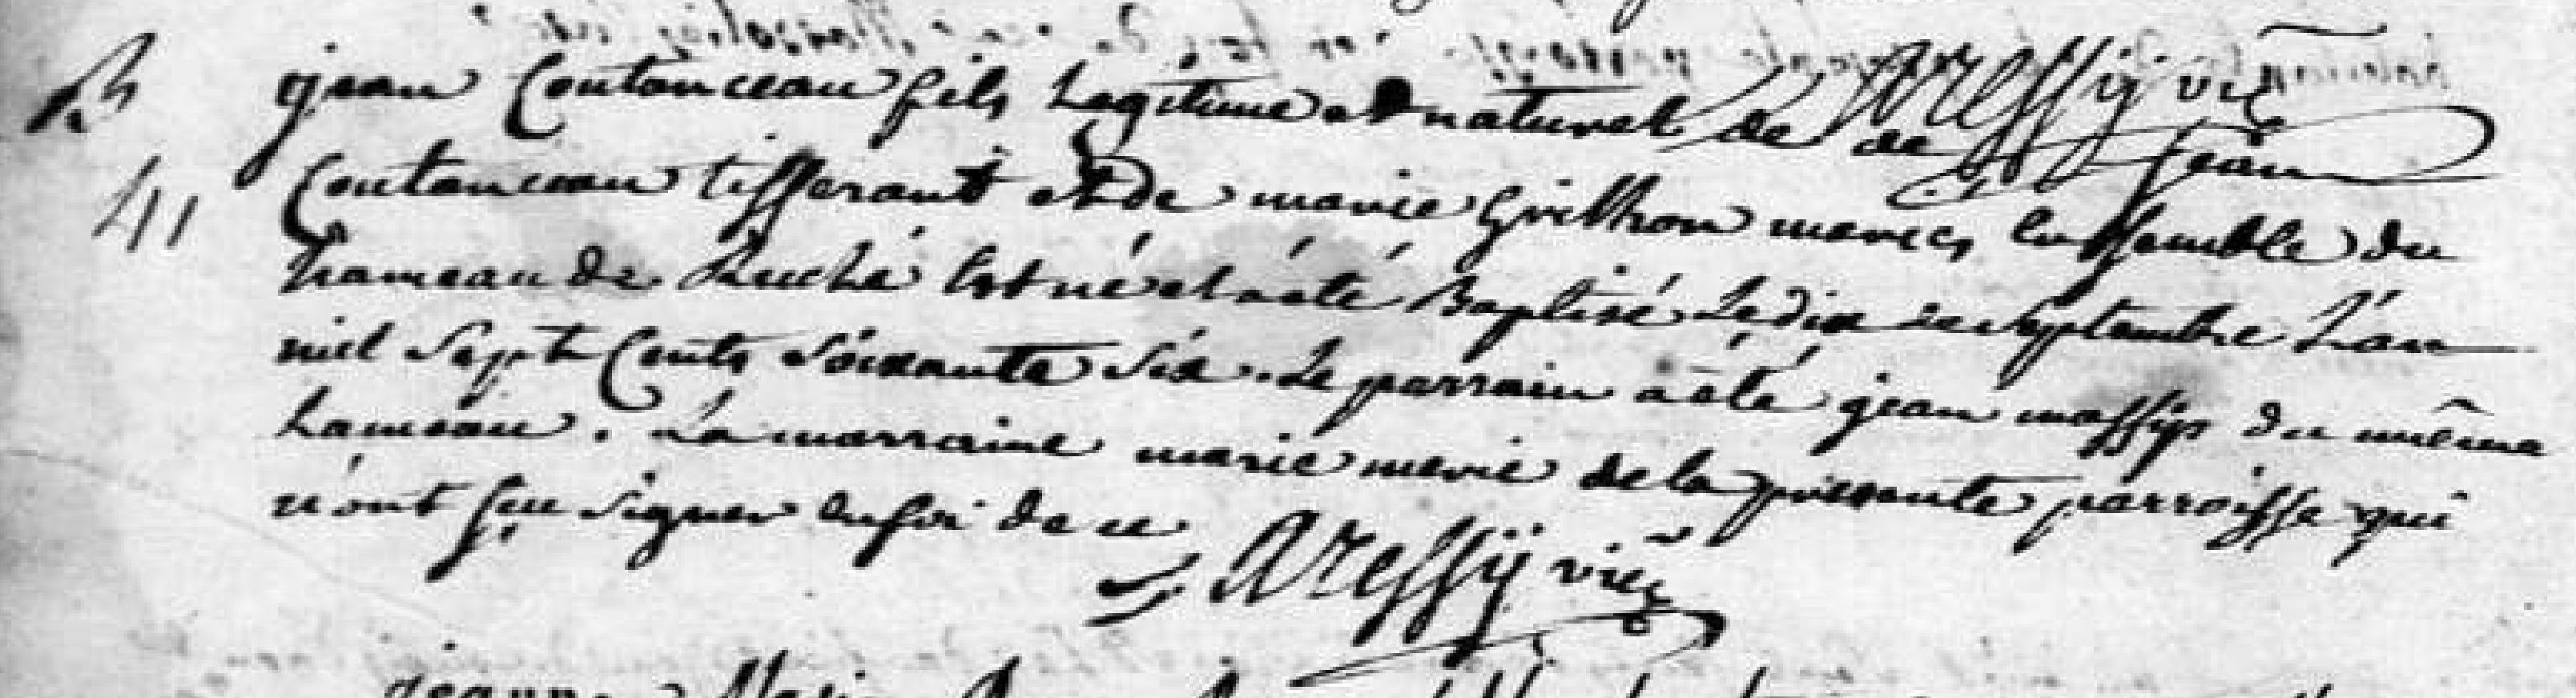 Aressÿ vic
B
jean Coutanceau fils Legitime et naturel de de jean
41
Coutanceau tisserant et de marie Grilhon mariés Enssemble du
hameau de Luché Est né et a eté Baptisé Le dix de septembre L'an
mil sept Cents soixante six. Le parrain a eté jean massÿs du même
hameau. La marraine marie merie de la presente parroisse qui
n'ont sçu signer en foi de ce
Aressÿ vic